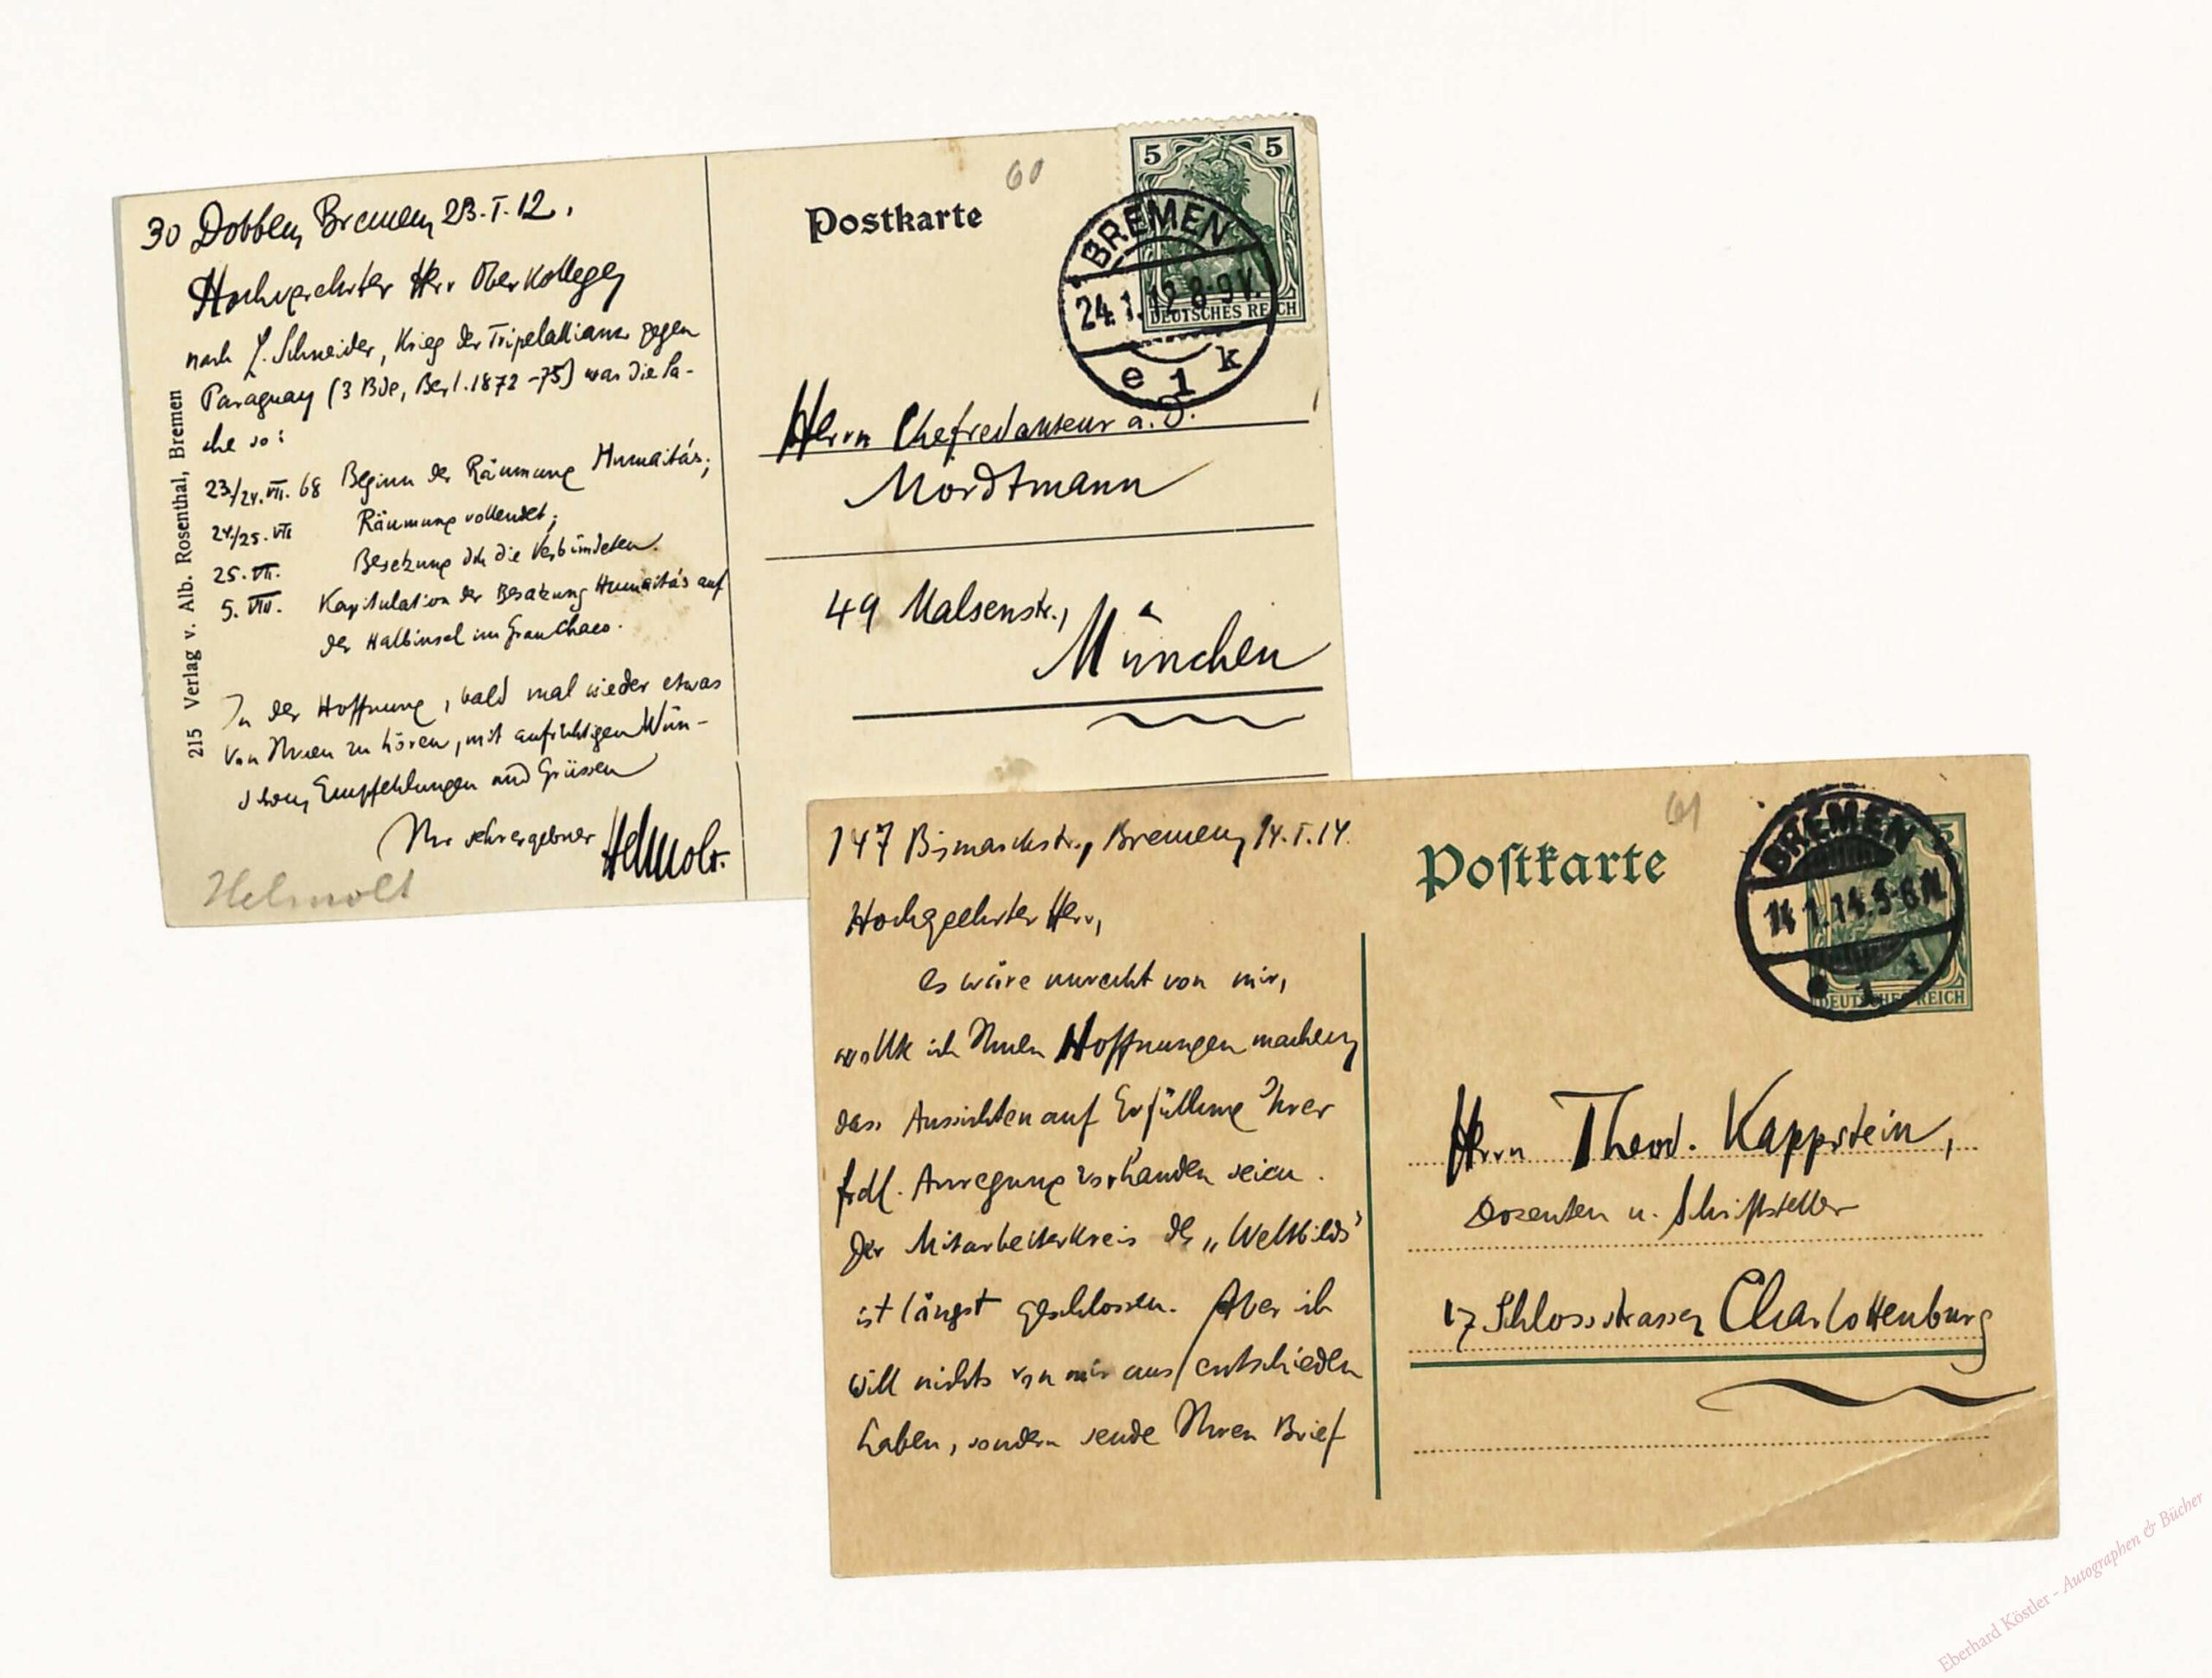 30 Dobben, Bremen, 23.I.12.
Hochverehrter Herr Oberkollege,
nach L. Schneider, Krieg der Tripelallianz gegen
Paraguay (3 Bde, Berl. 1872-75) war die Sa-
che so:
23/24.VII.68 Beginn der Räumung Humaitás;
24/25.VII Räumung vollendet;
25.VII. Besetzung dch die Verbündeten.
5.VIII. Kapitulation der Besatzung Humaitás auf
der Halbinsel im Gran Chaco.
In der Hoffnung, bald mal wieder etwas
von Ihnen zu hören, mit aufrichtigen Wün-
schen, Empfehlungen und Grüssen
Ihr sehr ergebner Helmolt.
Helmolt
215 Verlag v. Alb. Rosenthal, Bremen
60
Postkarte
5 5
DEUTSCHES REICH
BREMEN
24.1.12.8-9V.
e 1 k
Herrn Chefredakteur a.D.
Mordtmann
49 Malsenstr.,
München
147 Bismarckstr., Bremen, 14.I.14.
Hochgeehrter Herr,
es wäre unrecht von mir,
wollte ich Ihnen Hoffnungen machen,
dass Aussichten auf Erfüllung Ihrer
frdl. Anregung vorhanden seien.
Der Mitarbeiterkreis des „Weltbilds"
ist längst geschlossen. Aber ich
will nichts von mir aus entschieden
haben, sondern sende Ihren Brief
61
Postkarte
5
DEUTSCHES REICH
BREMEN
14.1.14.5-6N
1
Herrn Theod. Kappstein,
Dozenten u. Schriftsteller
17 Schlossstrasse, Charlottenburg
Eberhard Köstler - Autographen & Bücher